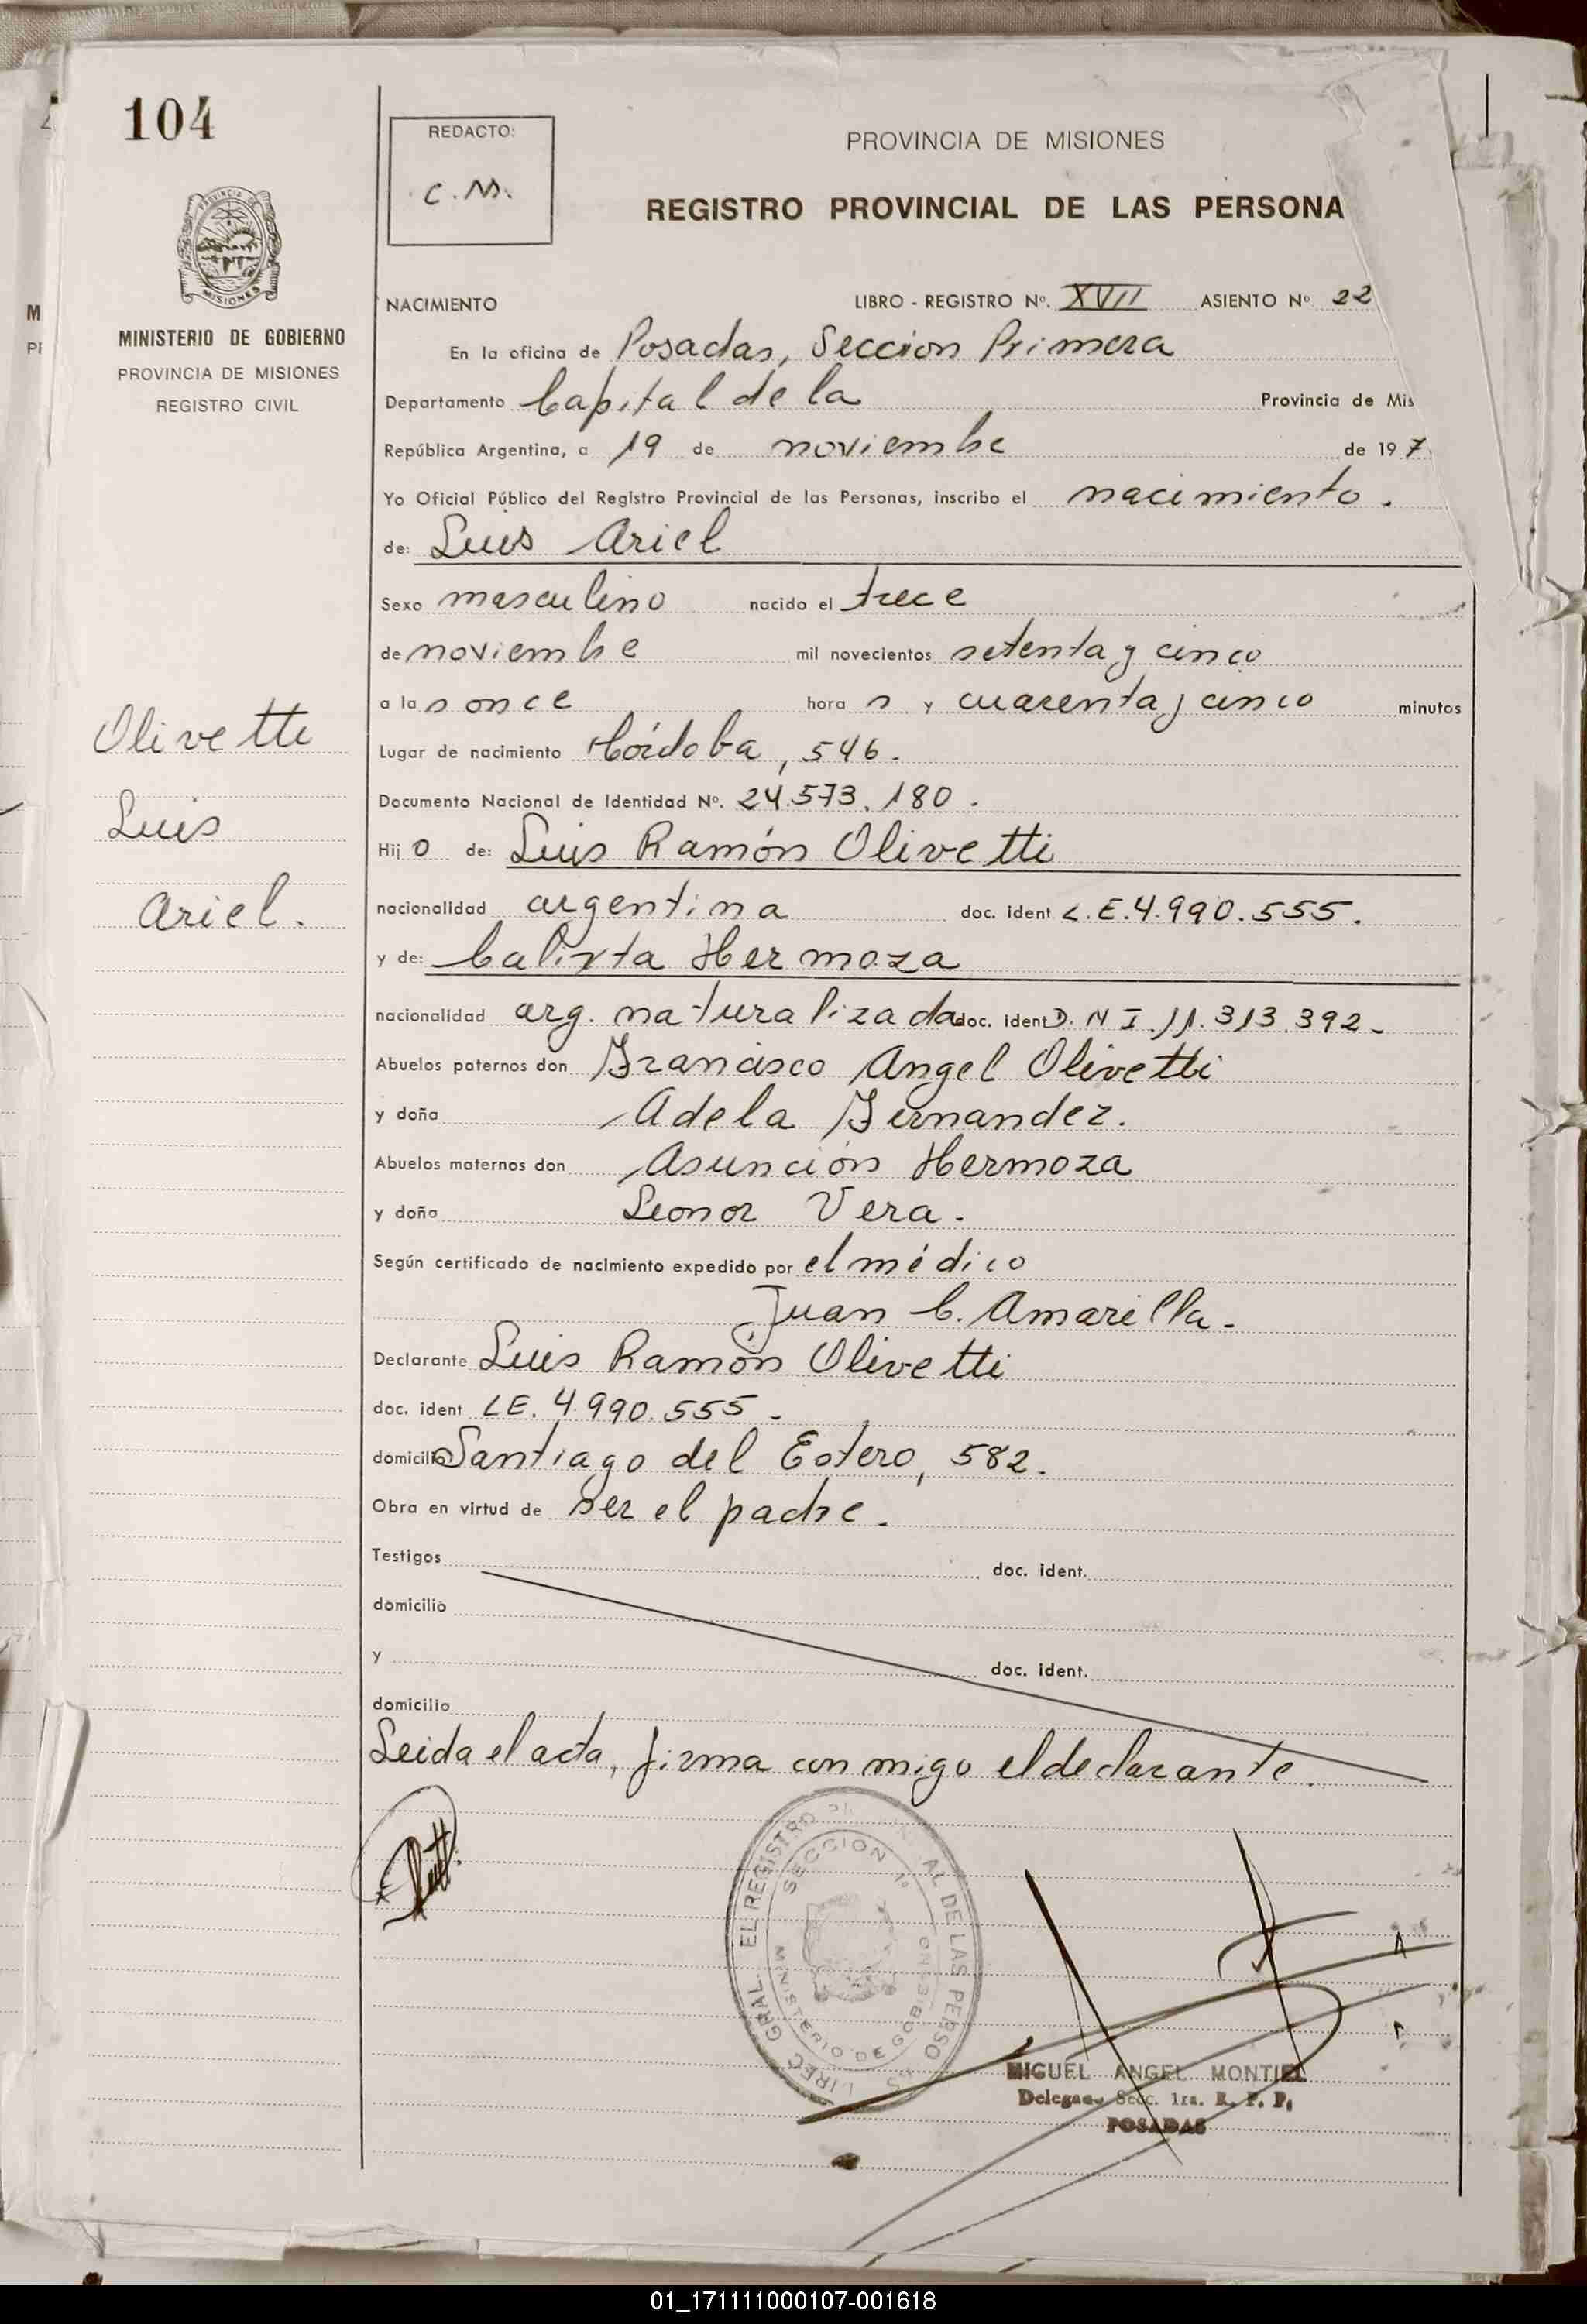 104
REDACTO:
C.M.
PROVINCIA DE MISIONES
REGISTRO PROVINCIAL DE LAS PERSONA
MISIONES
MINISTERIO DE GOBIERNO
PROVINCIA DE MISIONES
REGISTRO CIVIL
NACIMIENTO LIBRO - REGISTRO Nº. XVII ASIENTO Nº 22
En la oficina de Posadas, Seccion Primera
Departamento Capital de la Provincia de Mis
República Argentina, a 19 de noviembre de 197
Yo Oficial Público del Registro Provincial de las Personas, inscribo el nacimiento.
de: Luis Ariel
Sexo masculino nacido el trece
de noviembre mil novecientos setenta y cinco
a las once horas y cuarenta y cinco minutos
Olivetti
Luis
Ariel.
Lugar de nacimiento Córdoba, 546.
Documento Nacional de Identidad Nº. 24.573.180.
Hijo de: Luis Ramón Olivetti
nacionalidad argentina doc. ident L.E. 4.990.555.
y de: Calixta Hermoza
nacionalidad arg. naturalizada doc. ident D.N I. 11.313.392.
Abuelos paternos don Francisco Angel Olivetti
y doña Adela Fernandez.
Abuelos maternos don Asunción Hermoza
y doña Leonor Vera.
Según certificado de nacimiento expedido por el médico
Juan C. Amarilla.
Declarante Luis Ramón Olivetti
doc. ident L.E. 4.990.555.
domicilio Santiago del Estero, 582.
Obra en virtud de ser el padre.
Testigos doc. ident.
domicilio
y doc. ident.
domicilio
Leida el acta, firma con migo el declarante.
EL REGISTRO AL DE LAS PERSO
SECCION 1º
MINISTERIO DE GOBIERNO
MIGUEL ANGEL MONTIEL
Secc. 1ra. R. P. P.
POSADAS
01_171111000107-001618